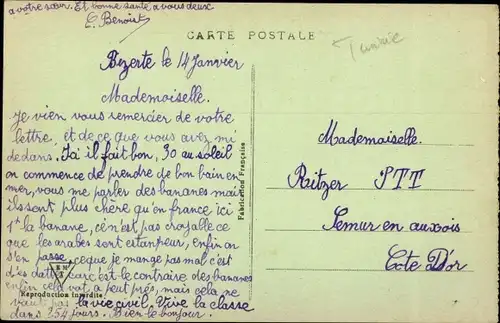 a votre sœur. Et bonne santé a vous deux
E. Benoist
CARTE POSTALE
Tunisie
Bizerte le 14 Janvier
Mademoiselle.
Je vien vous remercier de votre
lettre, et de ce que vous avez mi
dedans. Ici il fait bon, 30 au soleil
on commence de prendre de bon bain en
mer, vous me parler des bananes mais
ils sont plus chère qu'on france ici
1f la banane, ce n'est pas croyable ce
que les arabes sont estampeur, enfin on
s'en passe, ce que je mange pas mal c'est
des dattes, car c'est le contraire des bananes
enfin cela vat a peut prés, mais cela ne
vaut pas la vie civil. Vive la classe
dans 254 jours. Bien le bonjour.
Reproduction interdite
Fabrication Française
Mademoiselle.
Ritzer PTT
Semur en auxois
Cote D'or